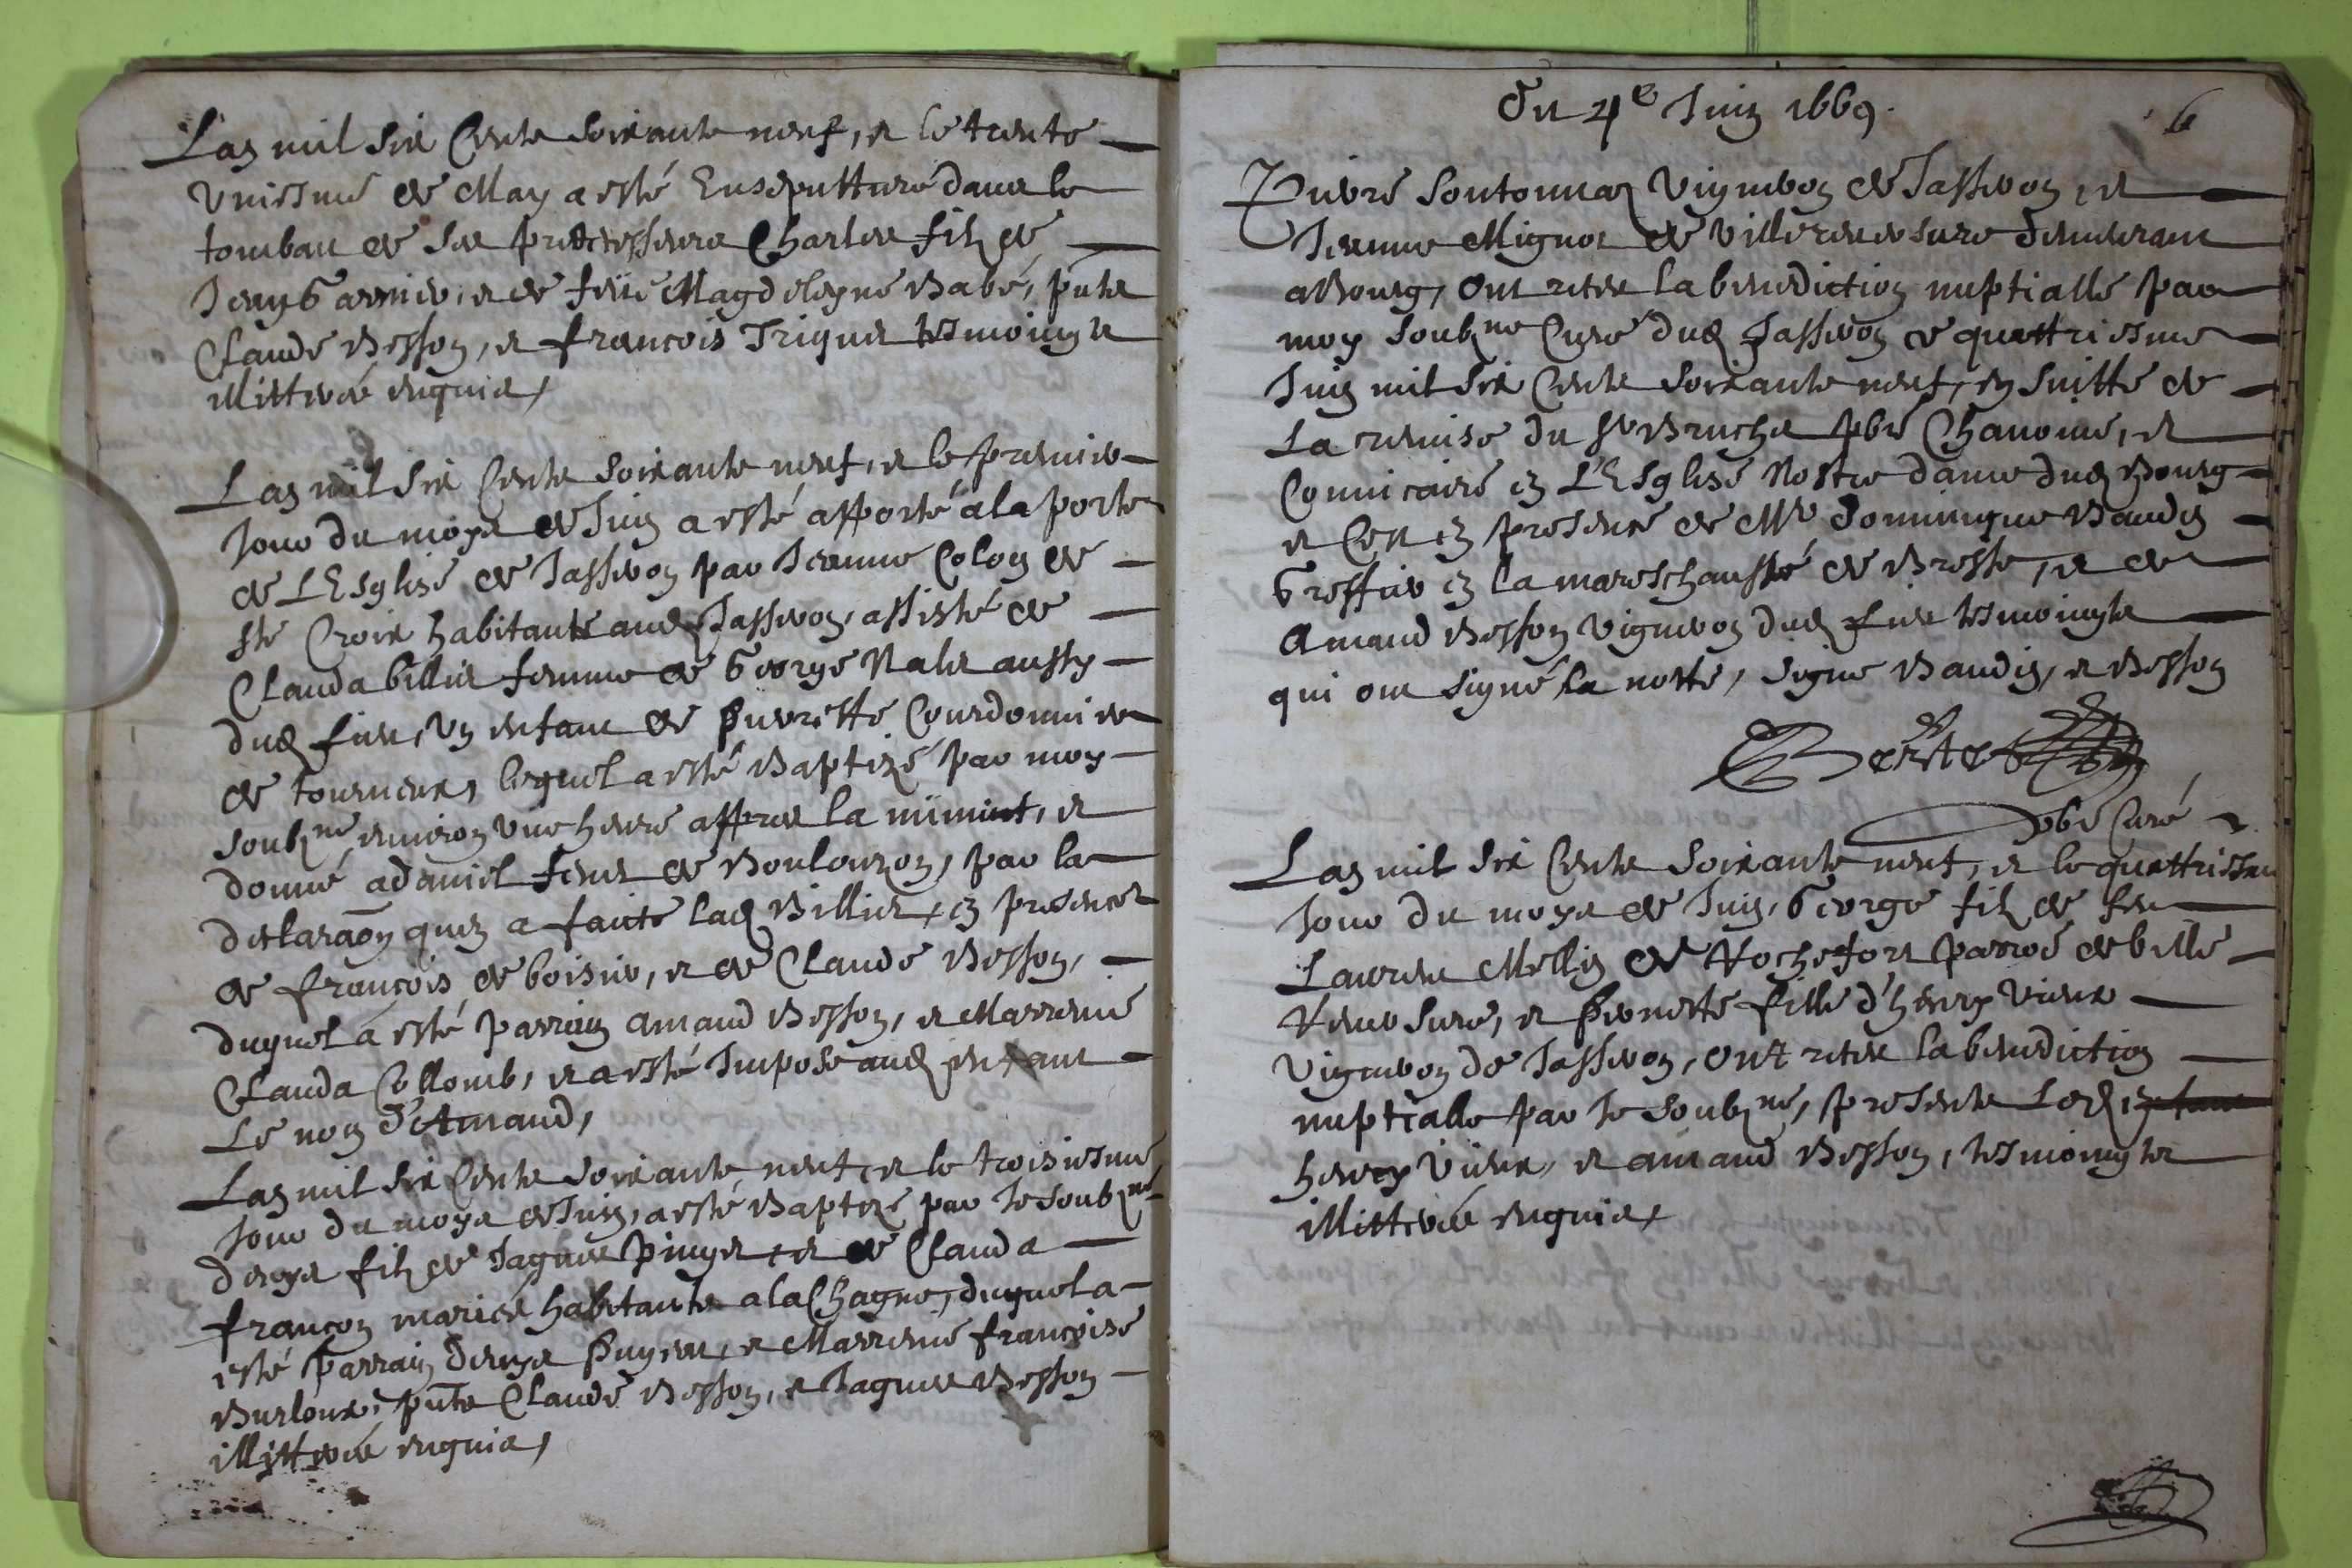 Lan mil six Cents soixante neuf, et le trente
uniesme de May a esté Ensepulturé dans le
tombau de ses predecesseurs Charles filz de
Jean Garnier, et de feüe Magdeleyne Babé, pnts
Claude Besson, et françois Triquet tesmoingts
illitteres enquis,
Lan mil six Cents soixante neuf, et le premier
Jour du moys de Juin a esté apporté a la porte
de LEsglise de Jasseron par Jeanne Colon de
Ste Croix habitante aud Jasseron, assisté de
Clauda billiet femme de George Nalet aussy
dud lieu, un enfant de Pierrette Courdonnier
de tournux, lequel a esté Baptizé par moy
soubzné environ une heure appres la miinuit, et
donné a daniel de Boulouzon, par la
declaraõn quen a faite lad Billiet, en presences
de françois de boisiu, et de Claude Besson,
duquel a esté Parrain amand Besson, et Marreine
Clauda Collomb, et a esté Imposé aud enfant
Le nom d'Amand,
Lan mil six Cents soixante neuf, et le troisiesme
Jour du moys de Juin, a esté Baptizé par Je soubzné
denys filz de Jaques Pinget et de Clauda
françon mariés habitants a la Chagne, duquel a
esté Parrain denys Puget, et Marreine françoise
Burloux, pnts Claude Besson, et Jaques Besson
illitteres enquis,
Du 4e Juin 1669.
6
Pierre Soutonnax Vigneron de Jasseron, et
Jeanne Mignot de Villereversure demeurant
a Bourg, ont receu la benediction nuptialle par
moy soubzné Curé dud Jasseron ce quattriesme
Juin mil six Cents soixante neuf, en suitte de
La remise du Sr Bruchet pbre Chanoine, et
Commicaire en L'Esglise Nostre dame dud Bourg
et Ce en presence de Mr dominique Baudin
Greffier en la mareschaussée de Bresse, et de
Amand Besson Vigneron dud lieu tesmoingts
qui ont signé la notte, signé Baudin, et Besson
pbre Curé
Lan mil six Cents soixante neuf, et le quattriesme
Jour du moys de Juin, George filz de feu
Laurens Mellin de Rochefort Parroe de bille
Reversure, et Pernette fille d'henry Vieux
Vigneron de Jasseron, ont receu la benediction
nuptialle par Je soubzné, presents Led
henry Vieux, et amand Besson, tesmoingts
illitteres enquis,